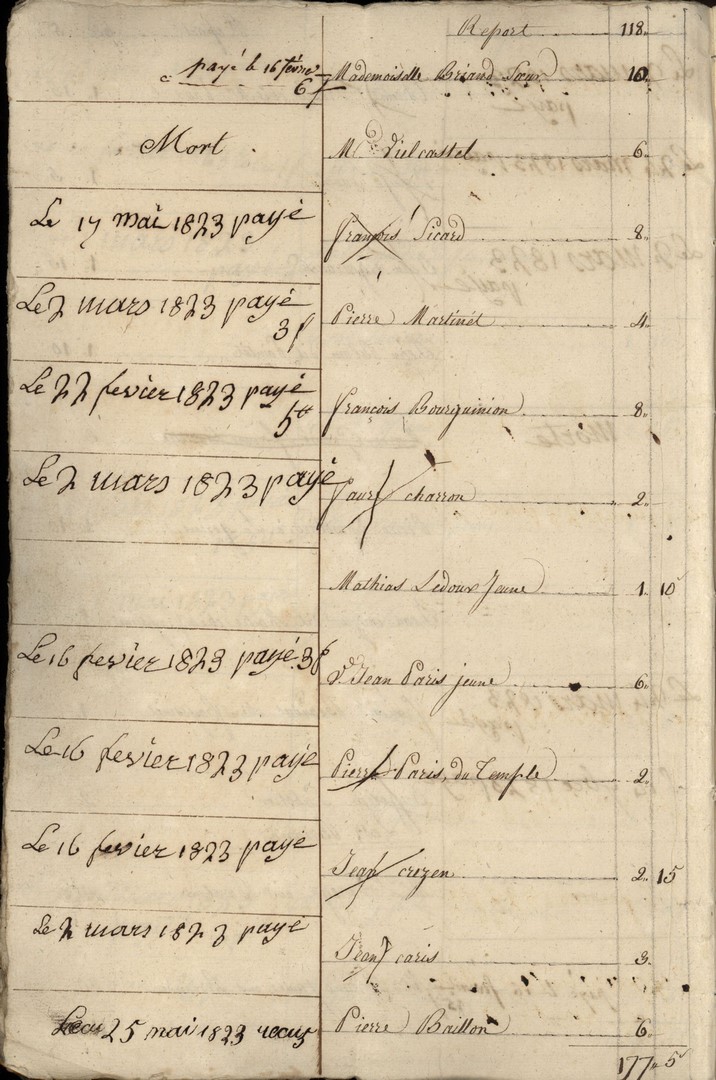 Report 118.
payé le 16 février
6 f Mademoiselle Briand Sœur 10.
Mort. Mr. Vielcastel 6.
Le 17 mai 1823 payé François Sicard 8.
Le 2 mars 1823 payé
3 f Pierre Martinet 4.
Le 22 fevier 1823 payé
5 tt François Bourguinion 8.
Le 2 mars 1823 payé charron 2.
Mathias Ledoux Jeune 1. 10
Le 16 fevier 1823 payé 3 f Jean Paris jeune 6.
Le 16 fevier 1823 payé Pierre Paris, du Temple 2.
Le 16 fevier 1823 payé Jean crozen 2. 15
Le 2 mars 1823 payé Jean caris 3.
25 mai 1823 recus Pierre Baillon 6.
177. 5